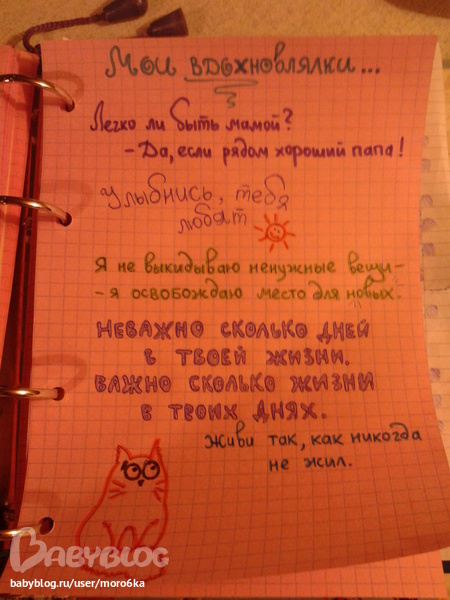 Мои вдохновлялки...
Легко ли быть мамой?
- Да, если рядом хороший папа!
Улыбнись, тебя
любят
Я не выкидываю ненужные вещи-
- я освобождаю место для новых.
Неважно сколько дней
в твоей жизни.
Важно сколько жизни
в твоих днях.
Живи так, как никогда
не жил.
BABYBLOG
babyblog.ru/user/moro6ka